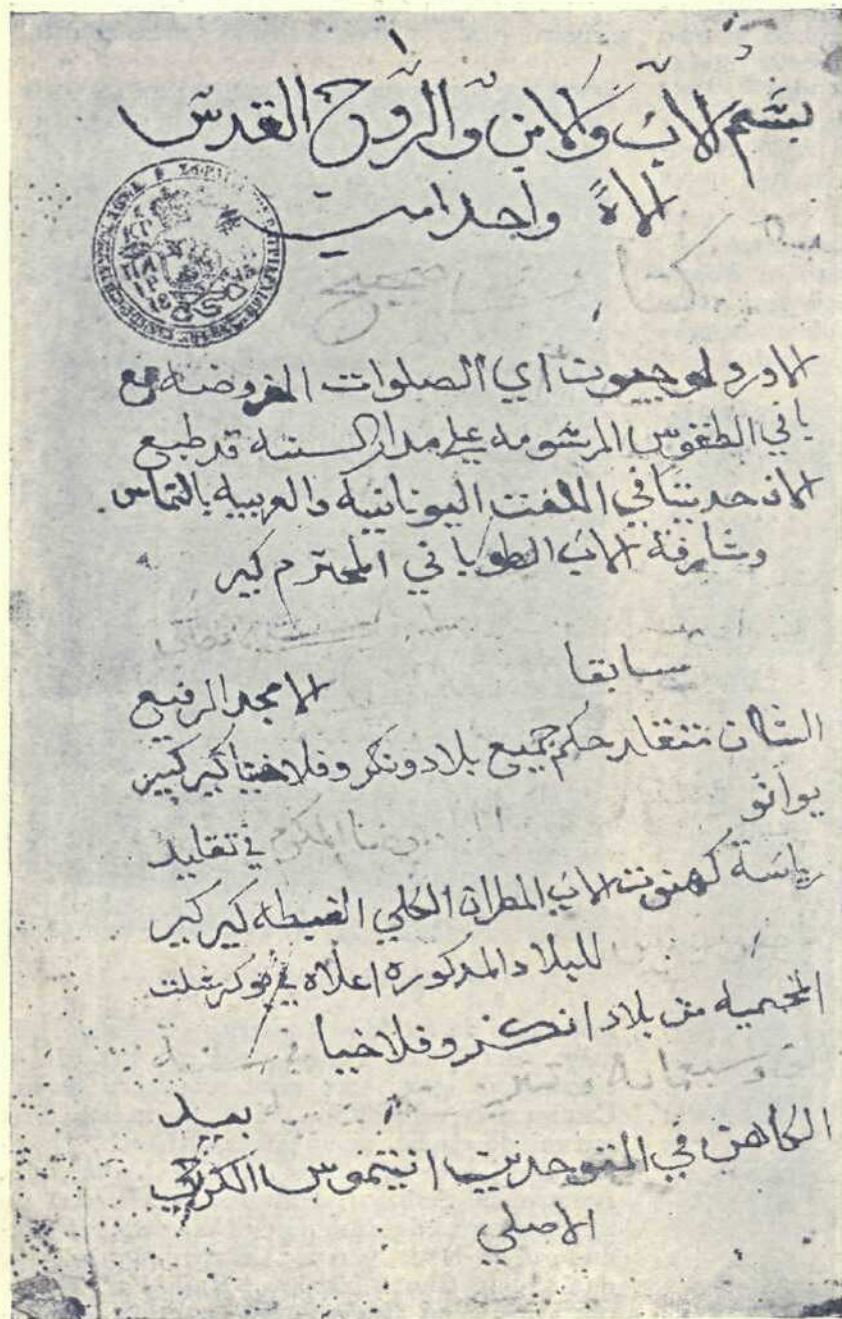 بسم الاب والابن والروح القدس
الاهً واحد امين
الاورولوجيون اي الصلوات المفروضه مع
باقي الطقوس المرسومه علي مدار السنه قد طبع
الان حديثا في اللغت اليونانيه والعربيه بالتماس
ومشارفة الاب الطوباني المحترم كير
سابقا
الامجد الرفيع
الشان متقلد حكم جميع بلاد ونكر وفلاخيا كير كير
يوانو
في تقليد
رياسة كهنوت الاب المطران الكلي الغبطه كير كير
للبلاد المذكوره اعلاه في بوكرشت
المحميه من بلاد انكر وفلاخيا
بيد
الكاهن في المتوحدين انتيموس الكرجي
الاصلي